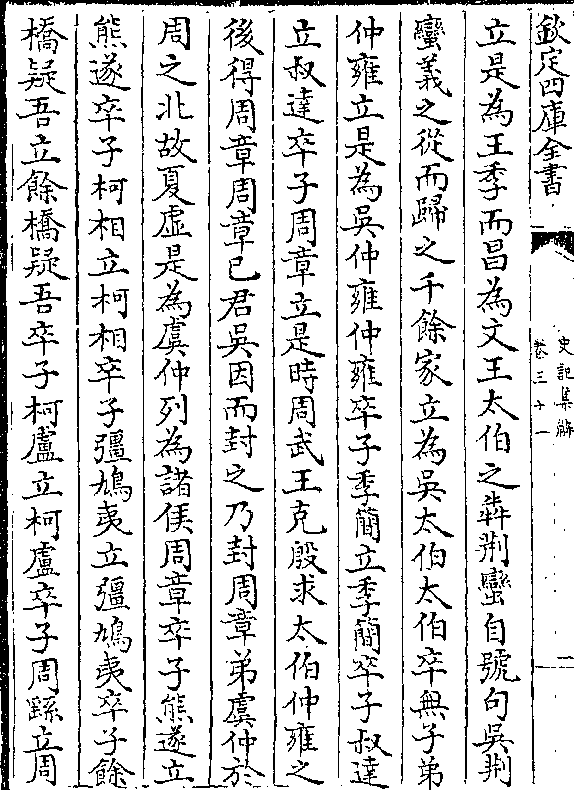 欽定四庫全書
史記集解
卷三十一
一
立是為王季而昌為文王太伯之犇荆蠻自號句吳荆
蠻義之從而歸之千餘家立為吳太伯太伯卒無子弟
仲雍立是為吳仲雍仲雍卒子季簡立季簡卒子叔達
立叔達卒子周章立是時周武王克殷求太伯仲雍之
後得周章周章已君吳因而封之乃封周章弟虞仲於
周之北故夏虛是為虞仲列為諸侯周章卒子熊遂立
熊遂卒子柯相立柯相卒子彊鳩夷立彊鳩夷卒子餘
橋疑吾立餘橋疑吾卒子柯盧立柯盧卒子周繇立周